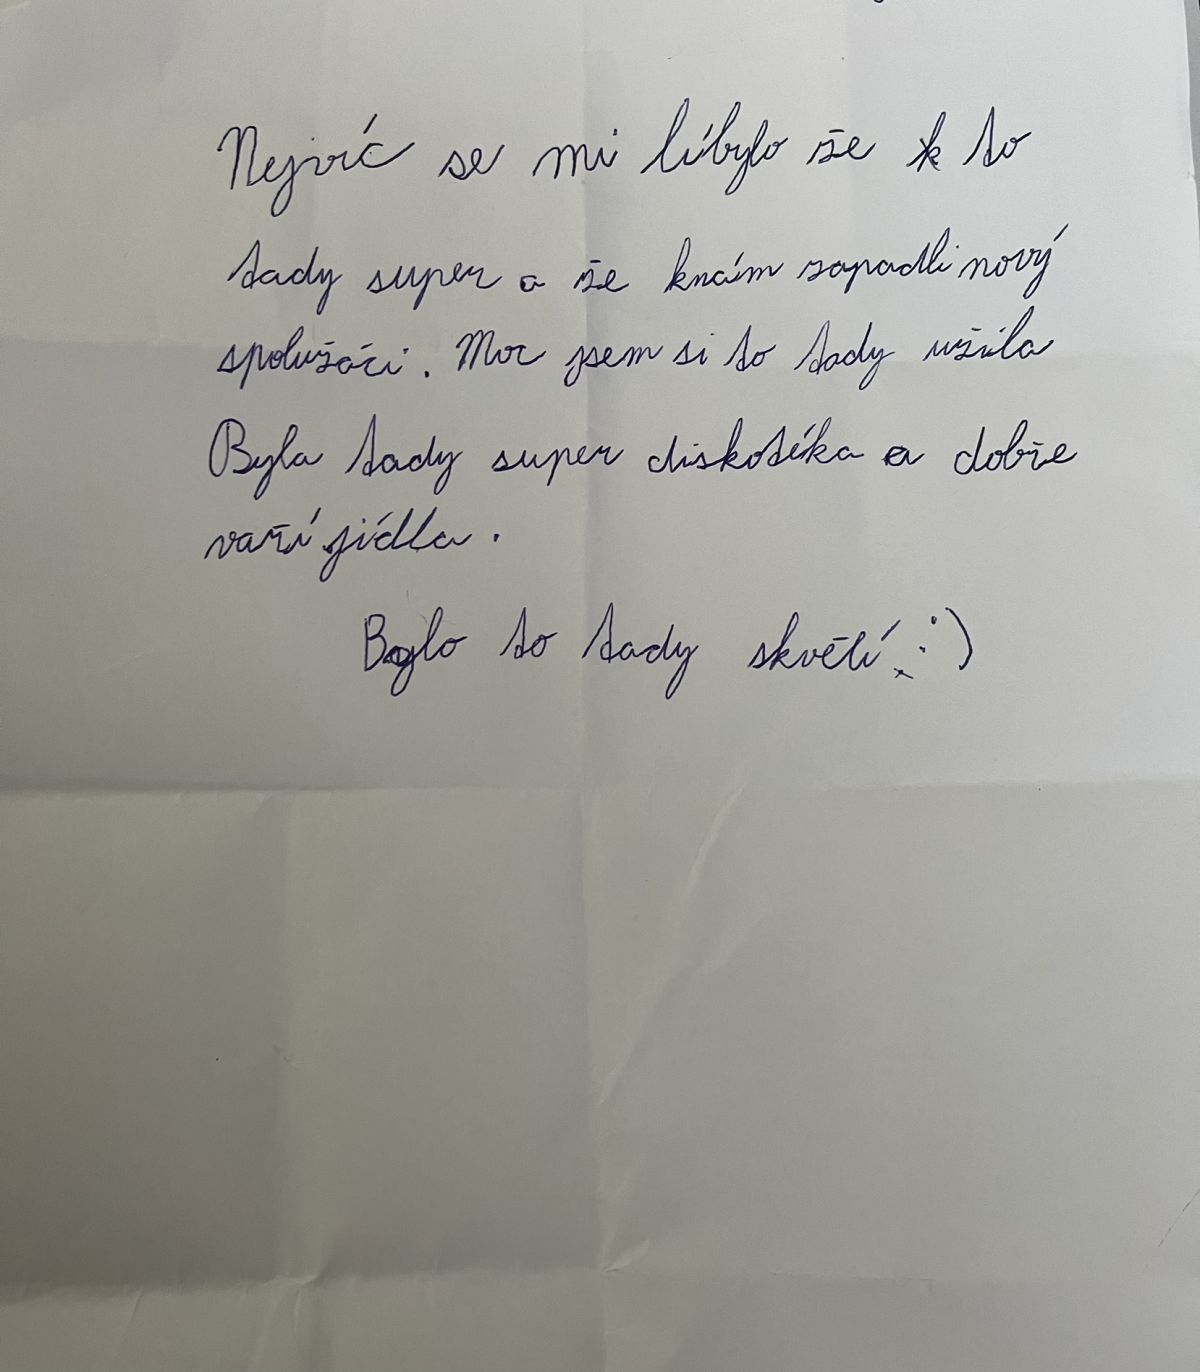 Nejvíc se mi líbylo že k to
tady super a že knám zapadli nový
spolužáci. Moc jsem si to tady užila
Byla tady super diskotéka a dobře
vaří jídla.
Bylo to tady skvělí :)